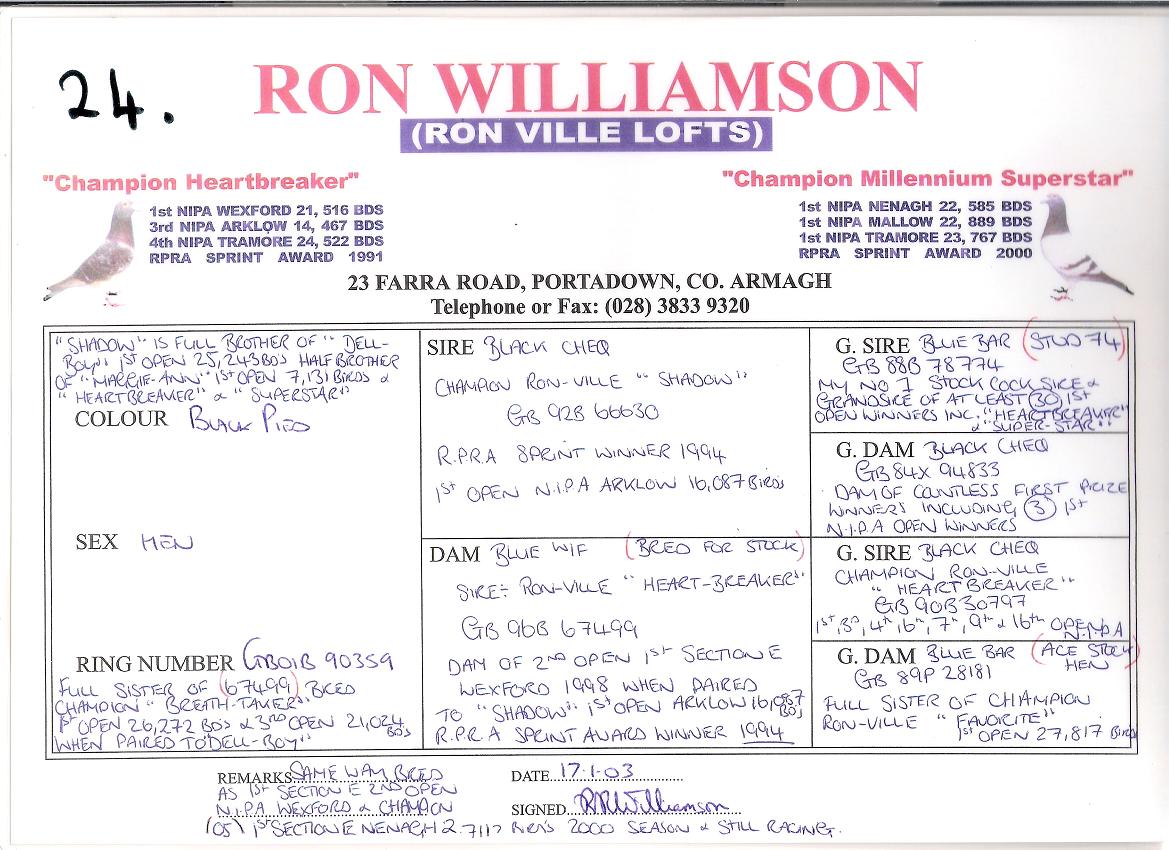 24.
RON WILLIAMSON
(RON VILLE LOFTS)
"Champion Heartbreaker"
1st NIPA WEXFORD 21, 516 BDS
3rd NIPA ARKLOW 14, 467 BDS
4th NIPA TRAMORE 24, 522 BDS
RPRA SPRINT AWARD 1991
"Champion Millennium Superstar"
1st NIPA NENAGH 22, 585 BDS
1st NIPA MALLOW 22, 889 BDS
1st NIPA TRAMORE 23, 767 BDS
RPRA SPRINT AWARD 2000
23 FARRA ROAD, PORTADOWN, CO. ARMAGH
Telephone or Fax: (028) 3833 9320
"SHADOW" IS FULL BROTHER OF "DELL-
BOY" 1ST OPEN 25,243 BDS HALF BROTHER
OF "MARGIE-ANN" 1ST OPEN 7,131 BIRDS &
"HEARTBREAKER" & "SUPERSTAR"
COLOUR BLACK PIED
SEX HEN
RING NUMBER GB01B 90359
FULL SISTER OF (67499) BRED
CHAMPION "BREATH-TAKER"
1ST OPEN 26,272 BDS & 3RD OPEN 21,024 BDS
WHEN PAIRED TO "DELL-BOY"
SIRE BLACK CHEQ
CHAMPION RON-VILLE "SHADOW"
GB 92B 66630
R.P.R.A SPRINT WINNER 1994
1ST OPEN N.I.P.A ARKLOW 16,087 BIRDS
DAM BLUE W/F (BRED FOR STOCK)
SIRE:- RON-VILLE "HEART-BREAKER"
GB 96B 67499
DAM OF 2ND OPEN 1ST SECTION E
WEXFORD 1998 WHEN PAIRED
TO "SHADOW" 1ST OPEN ARKLOW 16,087 BDS
R.P.R.A SPRINT AWARD WINNER 1994
G. SIRE BLUE BAR (STUD 74)
GB 88B 78774
MY NO 1 STOCK COCK SIRE &
GRANDSIRE OF AT LEAST (30) 1ST
OPEN WINNERS INC. "HEARTBREAKER"
& "SUPER-STAR"
G. DAM BLACK CHEQ
GB 84X 94833
DAM OF COUNTLESS FIRST PRIZE
WINNERS INCLUDING (3) 1ST
N.I.P.A OPEN WINNERS
G. SIRE BLACK CHEQ
CHAMPION RON-VILLE
"HEARTBREAKER"
GB 90B 30797
1ST, 3RD, 4th, 6th, 7th, 9th & 16th OPEN N.I.P.A
G. DAM BLUE BAR (ACE STOCK
HEN)
GB 89P 28181
FULL SISTER OF CHAMPION
RON-VILLE "FAVORITE"
1ST OPEN 27,817 BIRDS
REMARKS SAME WAY BRED
AS 1ST SECTION E 2ND OPEN
N.I.P.A WEXFORD & CHAMPION
(05) 1ST SECTION E NENAGH 2,717 BIRDS 2000 SEASON & STILL RACING.
DATE 17.1.03
SIGNED RRWilliamson